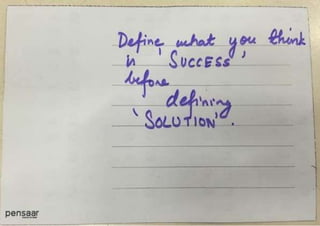 Define what you think
is 'SUCCESS'
before
defining
'SOLUTION'.
pensaar